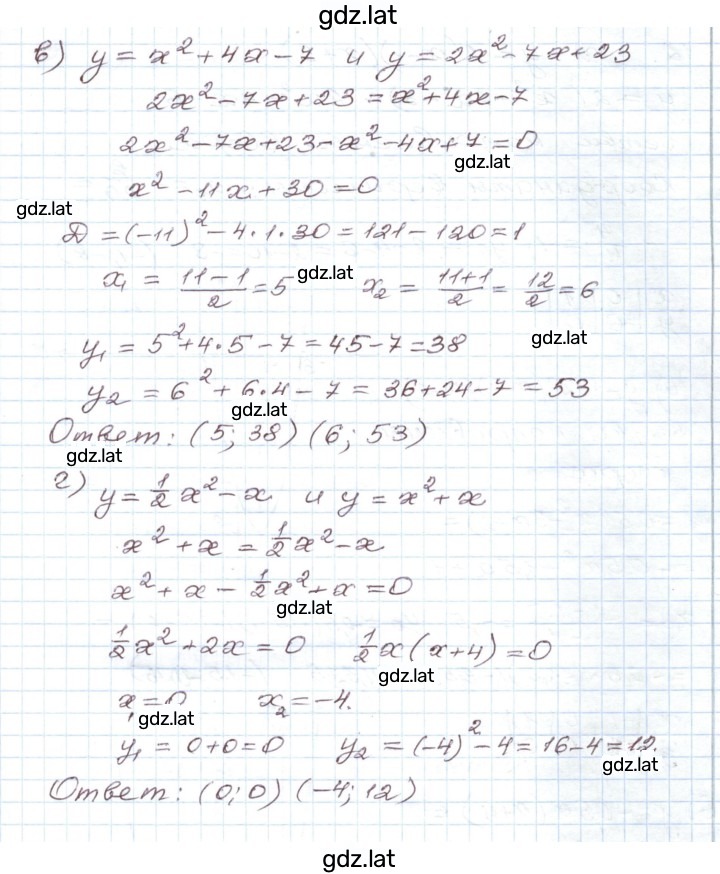 gdz.lat
в) y = x² + 4x - 7 и y = 2x² - 7x + 23
2x² - 7x + 23 = x² + 4x - 7
2x² - 7x + 23 - x² - 4x + 7 = 0
gdz.lat
x² - 11x + 30 = 0
gdz.lat
D = (-11)² - 4·1·30 = 121 - 120 = 1
x₁ = (11 - 1)/2 = 5 gdz.lat x₂ = (11+1)/2 = 12/2 = 6
gdz.lat
y₁ = 5² + 4·5 - 7 = 45 - 7 = 38
y₂ = 6² + 6·4 - 7 = 36 + 24 - 7 = 53
gdz.lat
Ответ: (5; 38) (6; 53)
gdz.lat
г) y = 1/2 x² - x и y = x² + x
x² + x = 1/2 x² - x
x² + x - 1/2 x² + x = 0
gdz.lat
1/2 x² + 2x = 0 1/2 x(x+4) = 0
gdz.lat
x₁ = 0 x₂ = -4.
gdz.lat
y₁ = 0 + 0 = 0 y₂ = (-4)² - 4 = 16 - 4 = 12.
gdz.lat
Ответ: (0; 0) (-4; 12)
gdz.lat